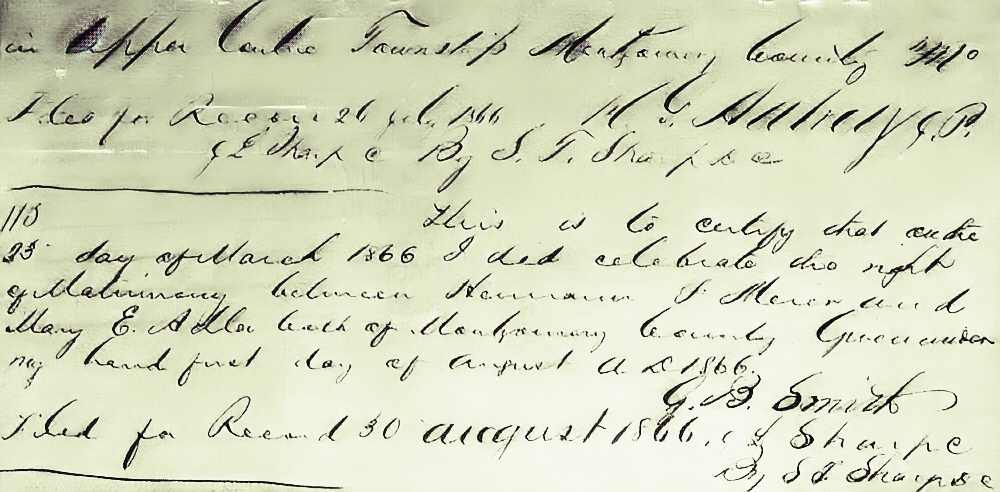 in Upper Township Montgomery County Mo
Filed for Record 26 1866. J.P.
By S. F. Sharp D C
113 This is to certify that on the
25 day of March 1866 I did celebrate the right
of Matrimony between Hermann and
Mary E. both of Montgomery County Given under
my hand first day of August A D 1866.
G. B. Smith
Filed for Record 30 august 1866. Sharp C
By S F Sharp D C